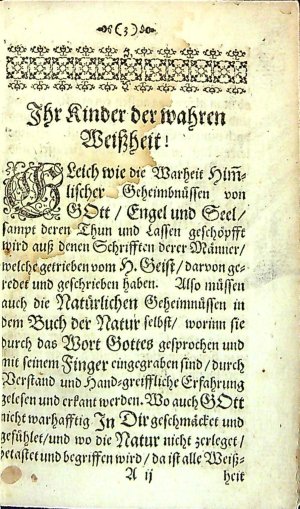 (3)
Ihr Kinder der wahren
Weißheit!
GLeich wie die Warheit Him̃-
lischer Geheimbnüssen von
GOtt / Engel und Seel /
sampt deren Thun und Lassen geschöpfft
wird auß denen Schrifften derer Männer /
welche getrieben vom H. Geist / darvon ge-
redet und geschrieben haben. Also müssen
auch die Natürlichen Geheimnüssen in
dem Buch der Natur selbst / worinn sie
durch das Wort Gottes gesprochen und
mit seinem Finger eingegraben sind / durch
Verstand und Hand-greiffliche Erfahrung
gelesen und erkant werden. Wo auch GOtt
nicht warhafftig In Dir geschmäcket und
gefühlet / und wo die Natur nicht zerleget /
betastet und begriffen wird / da ist alle Weiß-
A ij heit